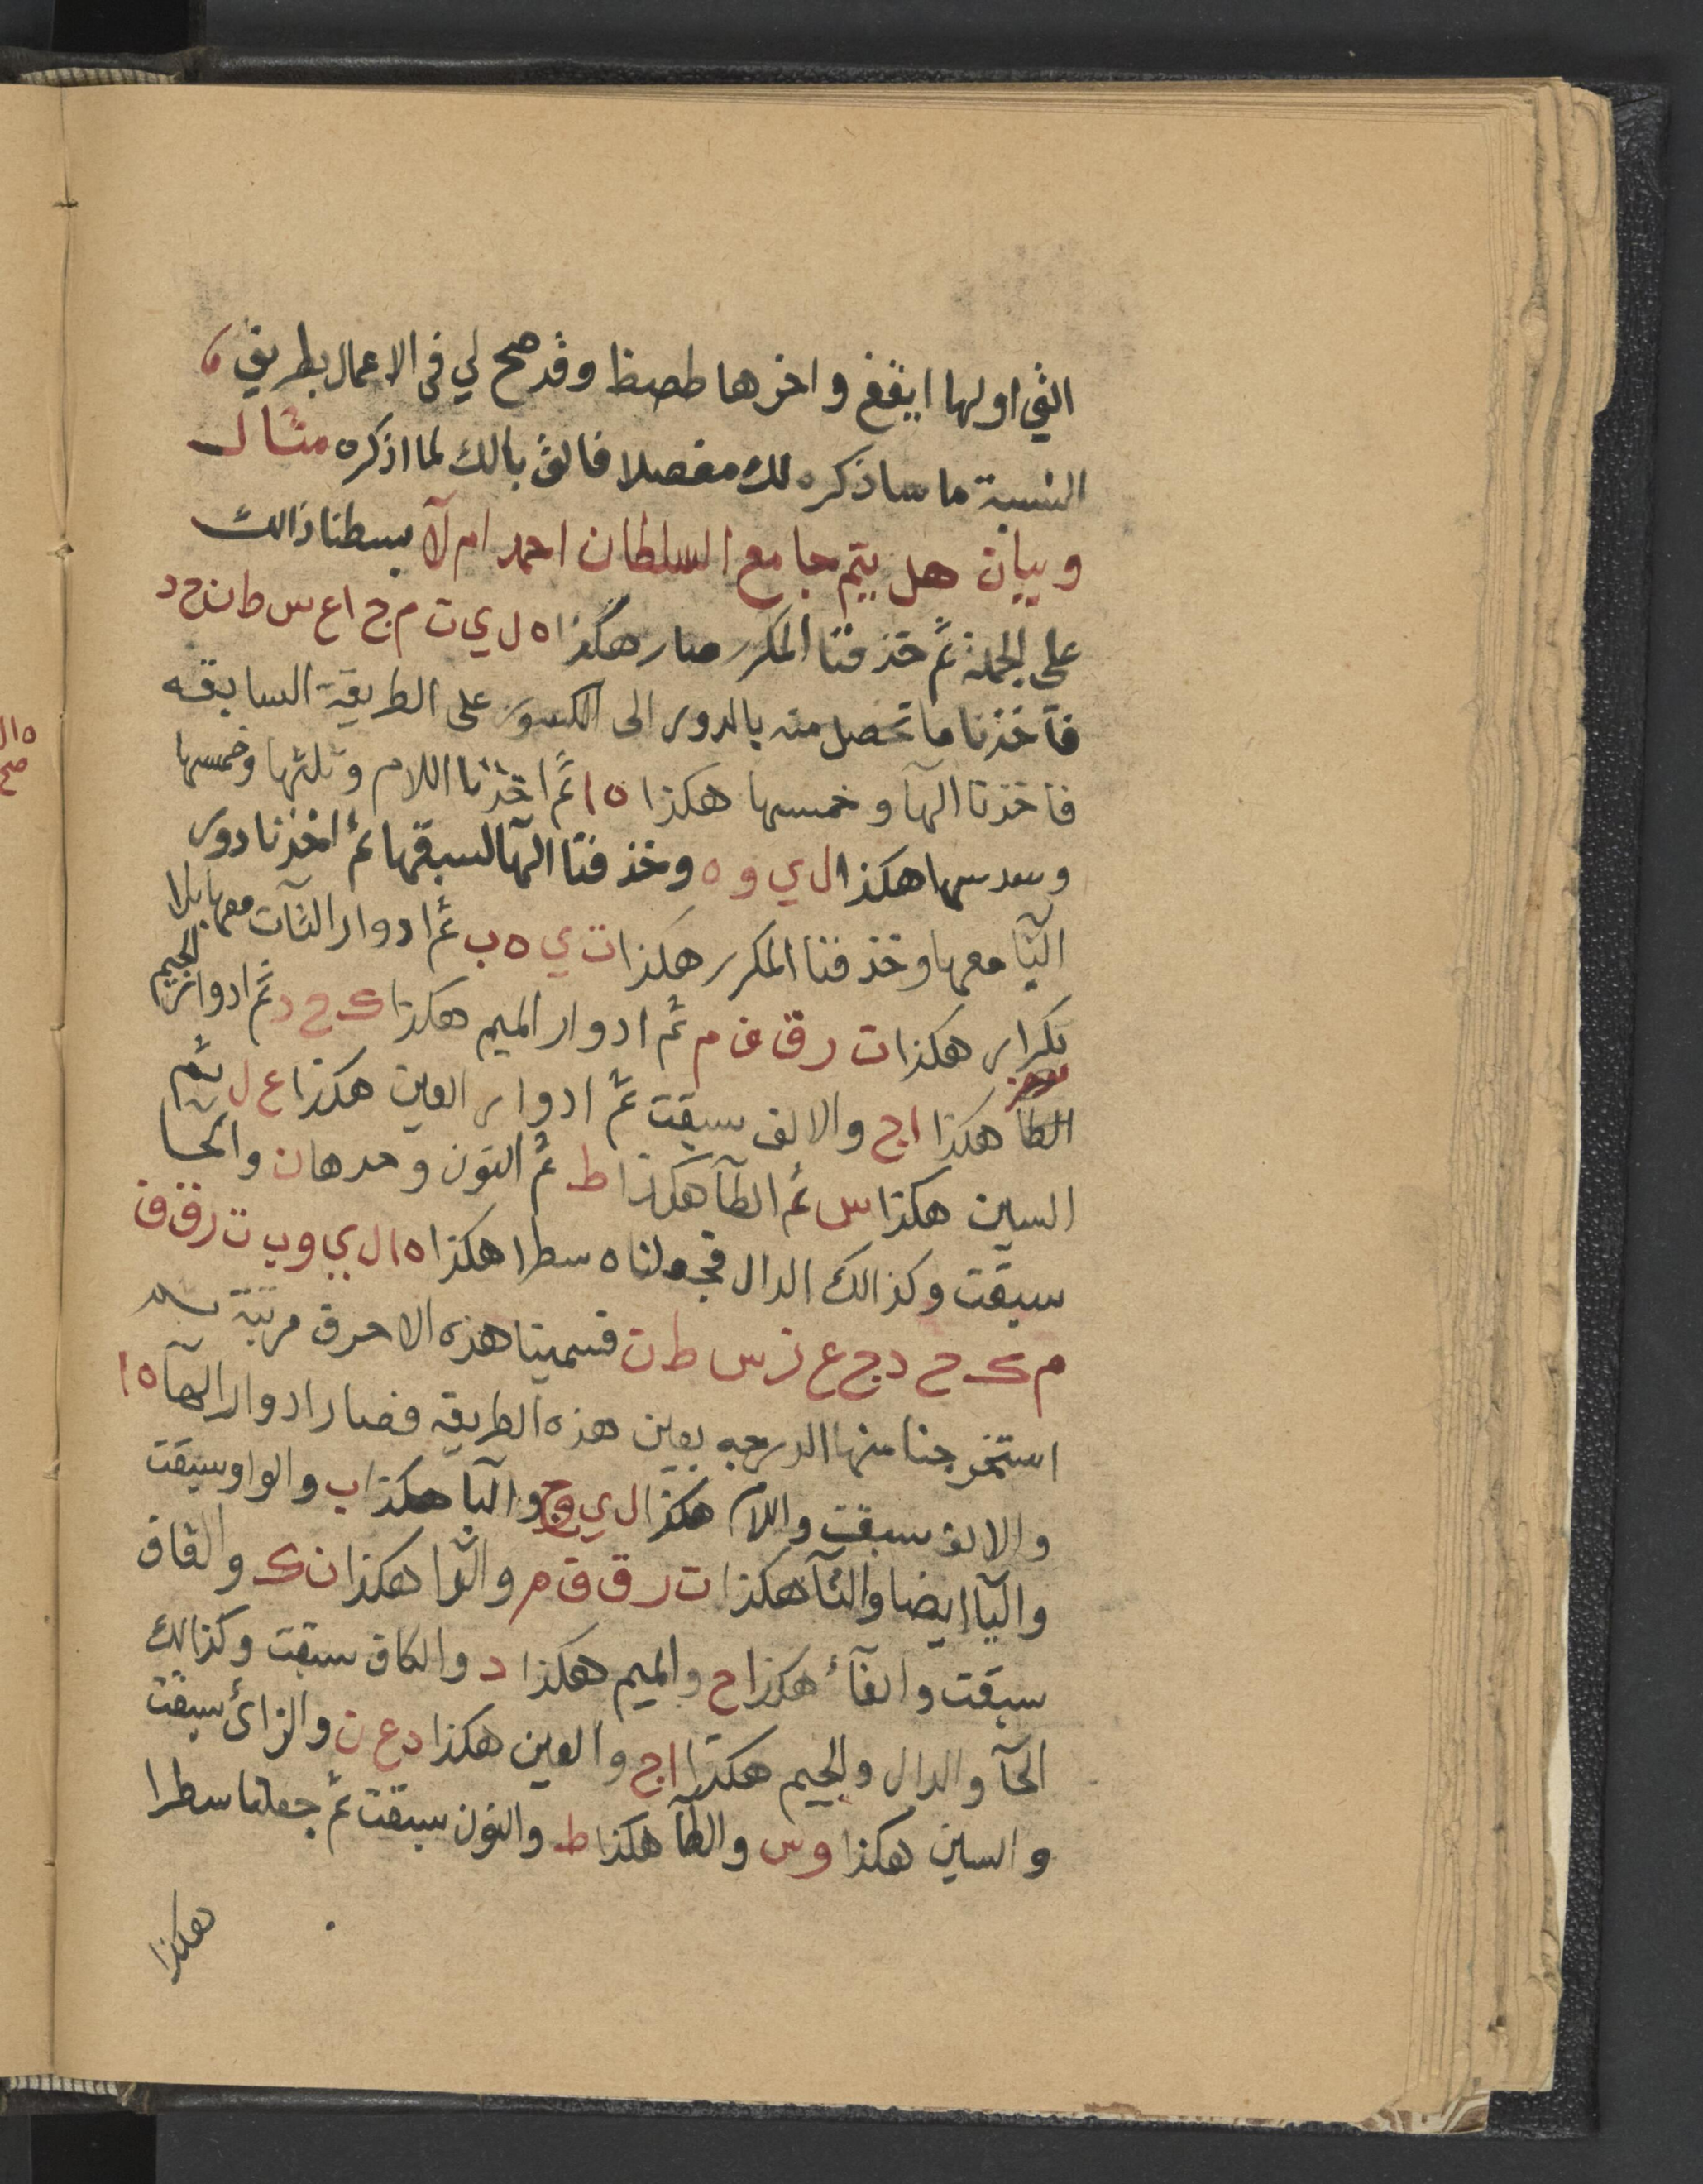 التي اولها ايقغ واخرها طصظ وقد صح لي في الاعمال بطريق
النسبة ما ساذكره لك مفصلا فالق بالك لما اذكره مثال
وبيان هل يتم جامع السلطان احمد ام لآ بسطنا ذالك
على الجملة ثم حذفنا المكرر صار هكذا ه ل ي ت م ج ا ع س ط ن ح د
فآخذنا ما تحصل منه بالدور الى الكسور على الطريقة السابقه
فاخذنا الهآ وخمسها هكذا ه ا ثم اخذنا اللام وثلثها وخمسها
وسدسها هكذا ل ي و ه وحذفنا الهآ لسبقها ثم اخذنا دور
اليآ معها وحذفنا المكرر هكذا ت ي ه ب ثم ادوار التآت معها بلا
تكرار هكذا ت ر ق ف م ثم ادوار الميم هكذا ك ح د ثم ادوار الجيم
الطآ هكذا ا ج والالف سبقت ثم ادوار العين هكذا ع ل ثم
السين هكذا س ثم الطآ هكذا ط ثم النون وحدها ن والحا
سبقت وكذالك الدال فجعلناه سطرا هكذا ه ا ل ي و ب ت ر ق ف
م ك ح د ج ع ز س ط ن فسمينا هذه الاحرف مرتبة
استخرجنا منها الدرجه بعين هذه الطريقه فصار ادوار الهآ ه ا
والالف سبقت واللام هكذا ل ي و ج والبآ هكذا ب والواو سبقت
واليآ ايضا والتآ هكذا ت ر ق ق م والرا هكذا ن ك والقاف
سبقت والفآء هكذا ح والميم هكذا د والكاف سبقت وكذالك
الحآ والدال والجيم هكذا ا ج والعين هكذا د ع ن والزاي سبقت
والسين هكذا و س والطآ هكذا ط والنون سبقت ثم جعلنا سطرا
هكذا